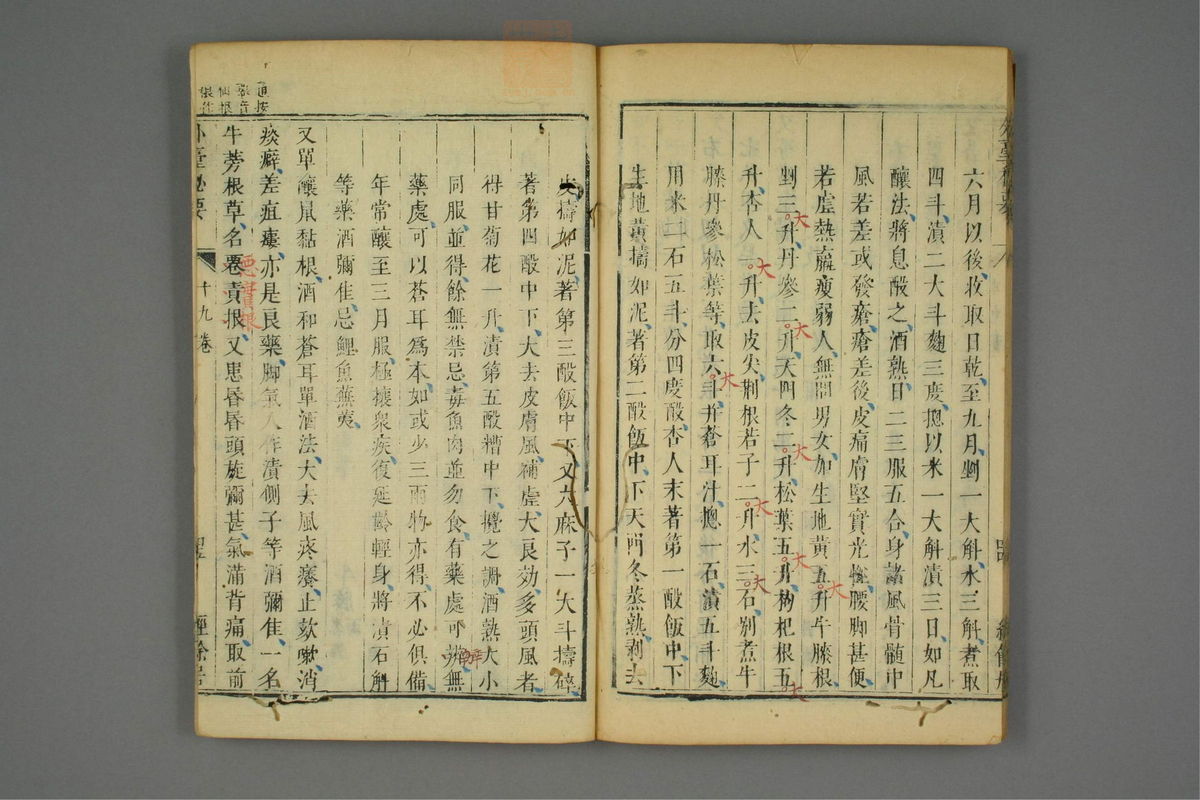 六月以後收取日乾至九月剉一大斛水三斛煮取
四斗漬二大斗麹三度摠以米一大斛漬三日如凡
釀法將息酘之酒熟日二三服五合身諸風骨髓中
風若差或發瘡瘡差後皮痛膚堅實光怪腰脚甚便
若虛熱羸瘦弱人無問男女加生地黃五升牛膝根
剉三升丹參二升天門冬二升松葉五升枸杞根五
升杏人一升去皮尖荆根若子二升水三石別煮牛
膝丹參松葉等取六斗并蒼耳汁摠一石漬五斗麹
用米二石五斗分四度酘杏人末著第一酘飯中下
生地黃擣如泥著第二酘飯中下天門冬蒸熟剥去
大
大
大
大
大
大
大
大
大
皮擣如泥著第三酘飯中下又六麻子一大斗擣碎
著第四酘中下大去皮膚風補虛大良効多頭風者
得甘菊花一升漬第五酘糟中下攪之調酒熟大小
同服並得餘無禁忌毒魚肉並勿食有藥處可辨無
藥處可以蒼耳爲本如或少三兩物亦得不必俱備
年常釀至三月服極攘衆疾復延齡輕身將漬石斛
等藥酒彌佳忌鯉魚蕪荑
又單釀鼠黏根酒和蒼耳單酒法大去風疼癢止欬嗽消
痰癖差疽瘻亦是良藥脚氣人作漬側子等酒彌佳一名
牛蒡根草名惡責根又患昏昏頭旋彌甚氣滿背痛取前
外臺秘要
十九卷
經餘居